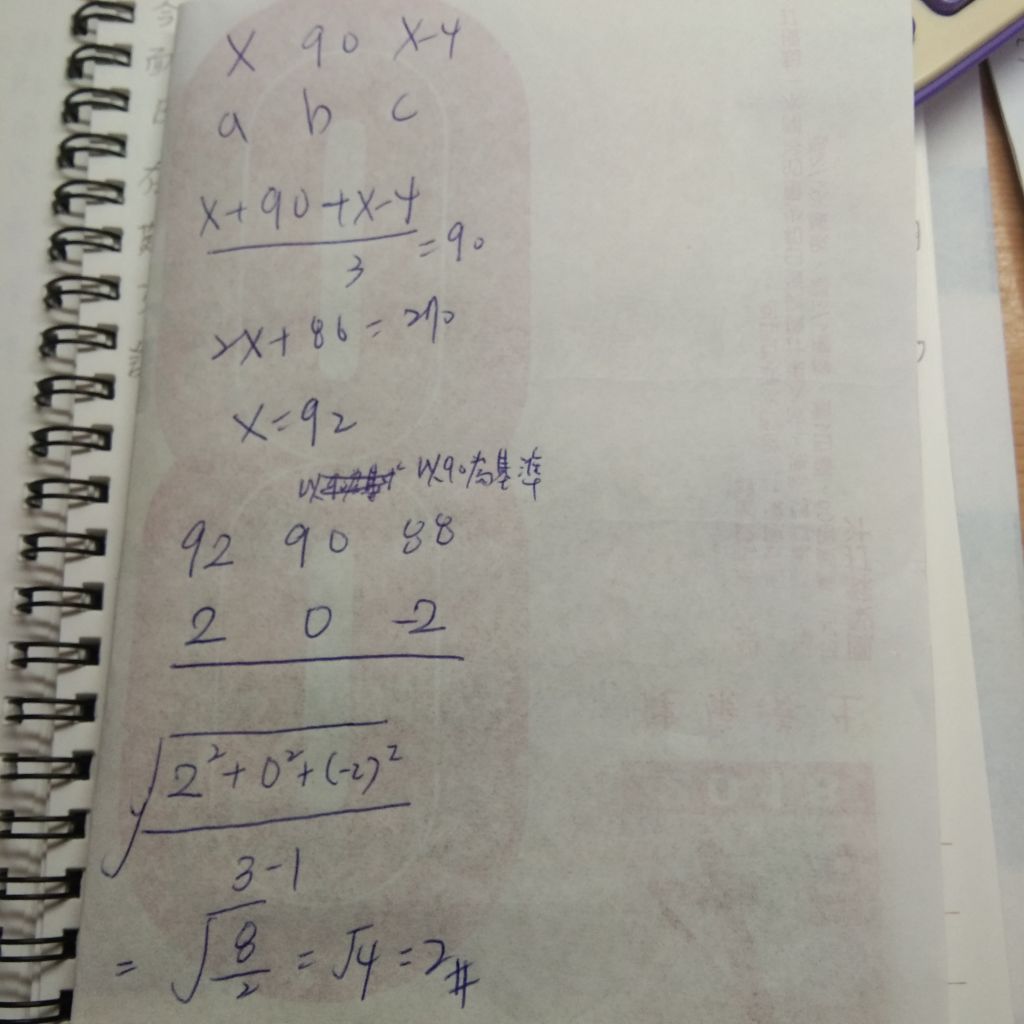 x 90 x-4
a b c
x+90+x-4
3
=90
2x+86=270
x=92
以90為基準
92 90 88
2 0 -2
√2²+0²+(-2)²
3-1
=√8/2=√4=2#